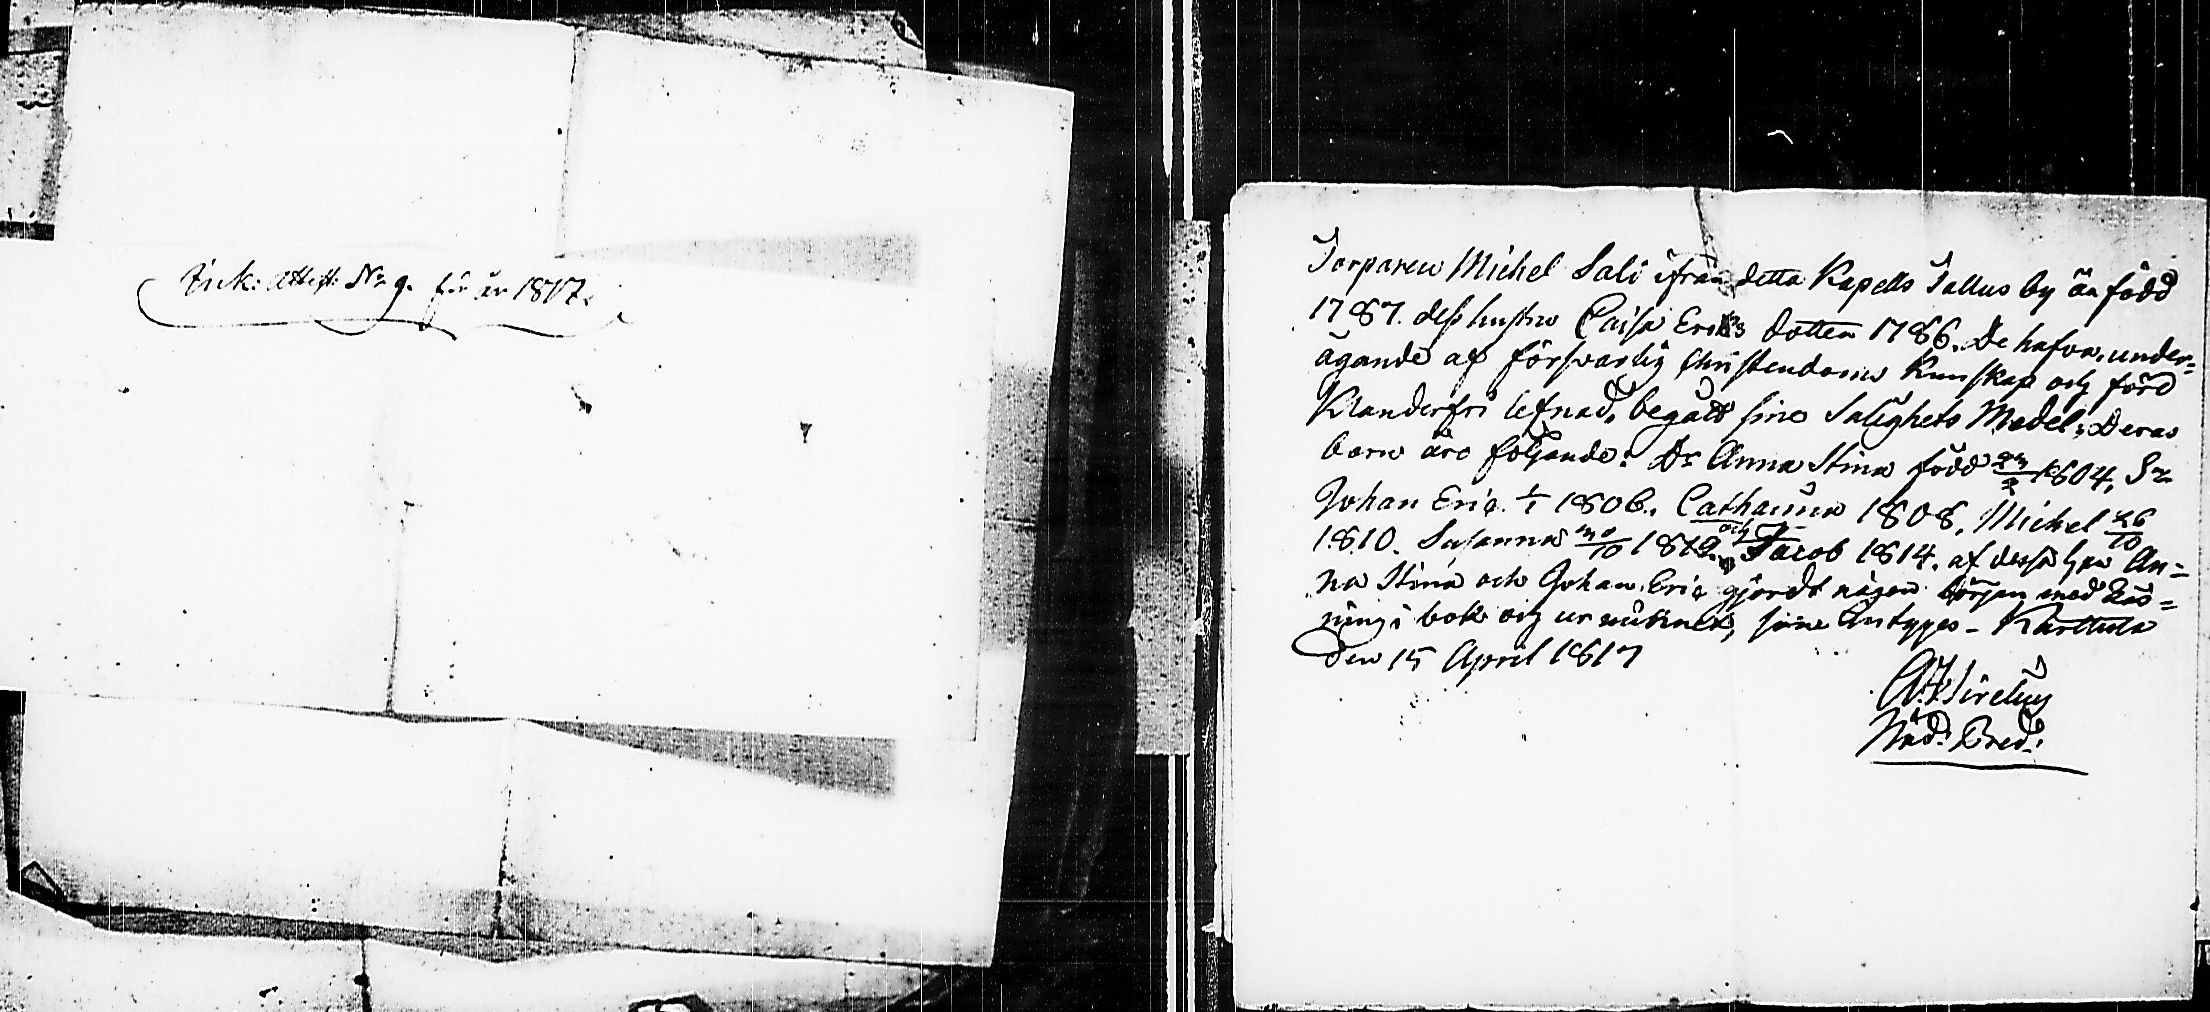 Attest: No 9. för år 1817.
Torparen Michel Sali ifrån detta Kapells Tallus by är född
1787. dess hustru Caisa Eriks dotter 1786. De hafva, under-
ägande af försvarlig Christendoms Kunskap och förd
Klanderfri lefnad, begått sine Salighets Medel; Deras
barn äro följande: Dr Anna Stina född 1804, Sn
Johan Eric 1/1 1806., Catharina 1808, Michel 26/10
1810. Susanna 30/10 1812, och Jacob 1814. af dessa An-
na Stina och Johan Eric gjordt någon början med Läs-
ning i bok och ur minnet, sine Intyges - Karttula
den 15 April 1817
Sirelius
Nåd. Pred.